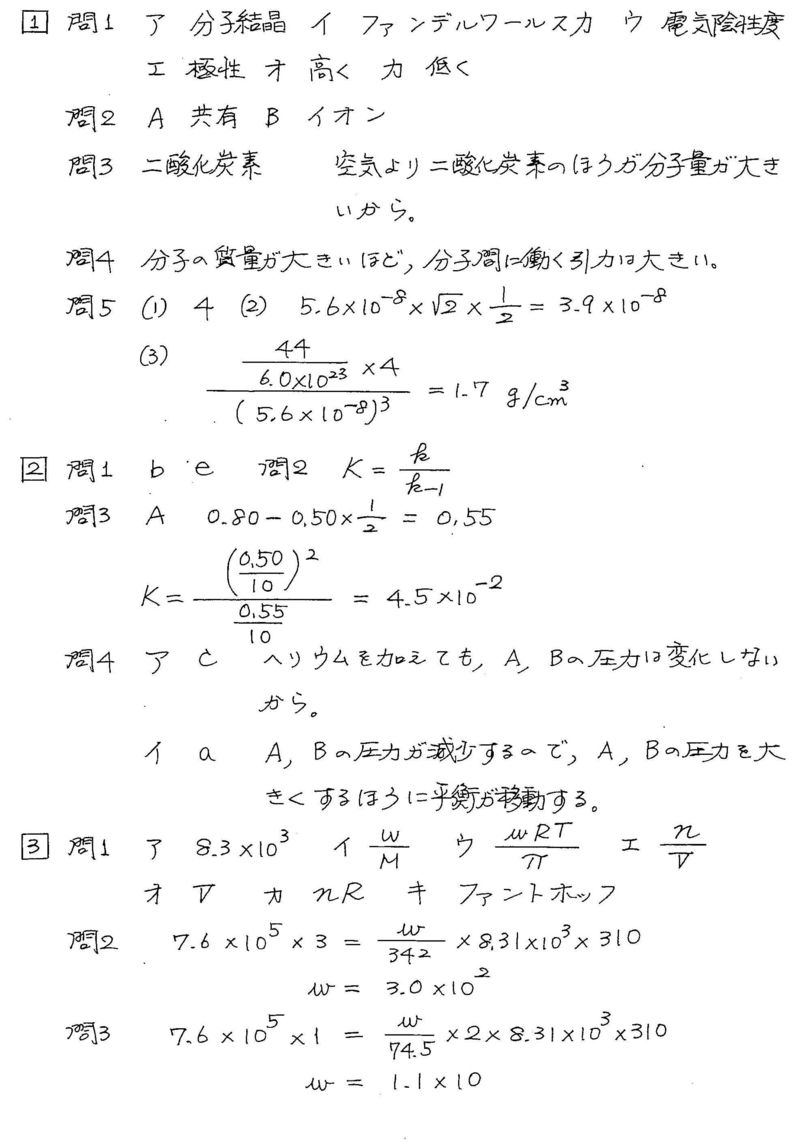 1 問1 ア 分子結晶 イ ファンデルワールス力 ウ 電気陰性度
エ 極性 オ 高く カ 低く
問2 A 共有 B イオン
問3 二酸化炭素 空気より二酸化炭素のほうが分子量が大き
いから。
問4 分子の質量が大きいほど,分子間に働く引力は大きい。
問5 (1) 4 (2) 5.6×10⁻⁸×√2×1/2 = 3.9×10⁻⁸
(3) (44/(6.0×10²³) ×4)/(5.6×10⁻⁸)³ = 1.7 g/cm³
2 問1 b e 問2 K = k/k-1
問3 A 0.80-0.50×1/2 = 0.55
K = (0.50/10)²/(0.55/10) = 4.5×10⁻²
問4 ア c ヘリウムを加えても, A, Bの圧力は変化しない
から。
イ a A, Bの圧力が減少するので, A, Bの圧力を大
きくするほうに平衡が移動する。
3 問1 ア 8.3×10³ イ w/M ウ wRT/π エ n/V
オ V カ nR キ ファントホッフ
問2 7.6×10⁵×3 = w/342 ×8.31×10³×310
w = 3.0×10²
問3 7.6×10⁵×1 = w/74.5 ×2×8.31×10³×310
w = 1.1×10